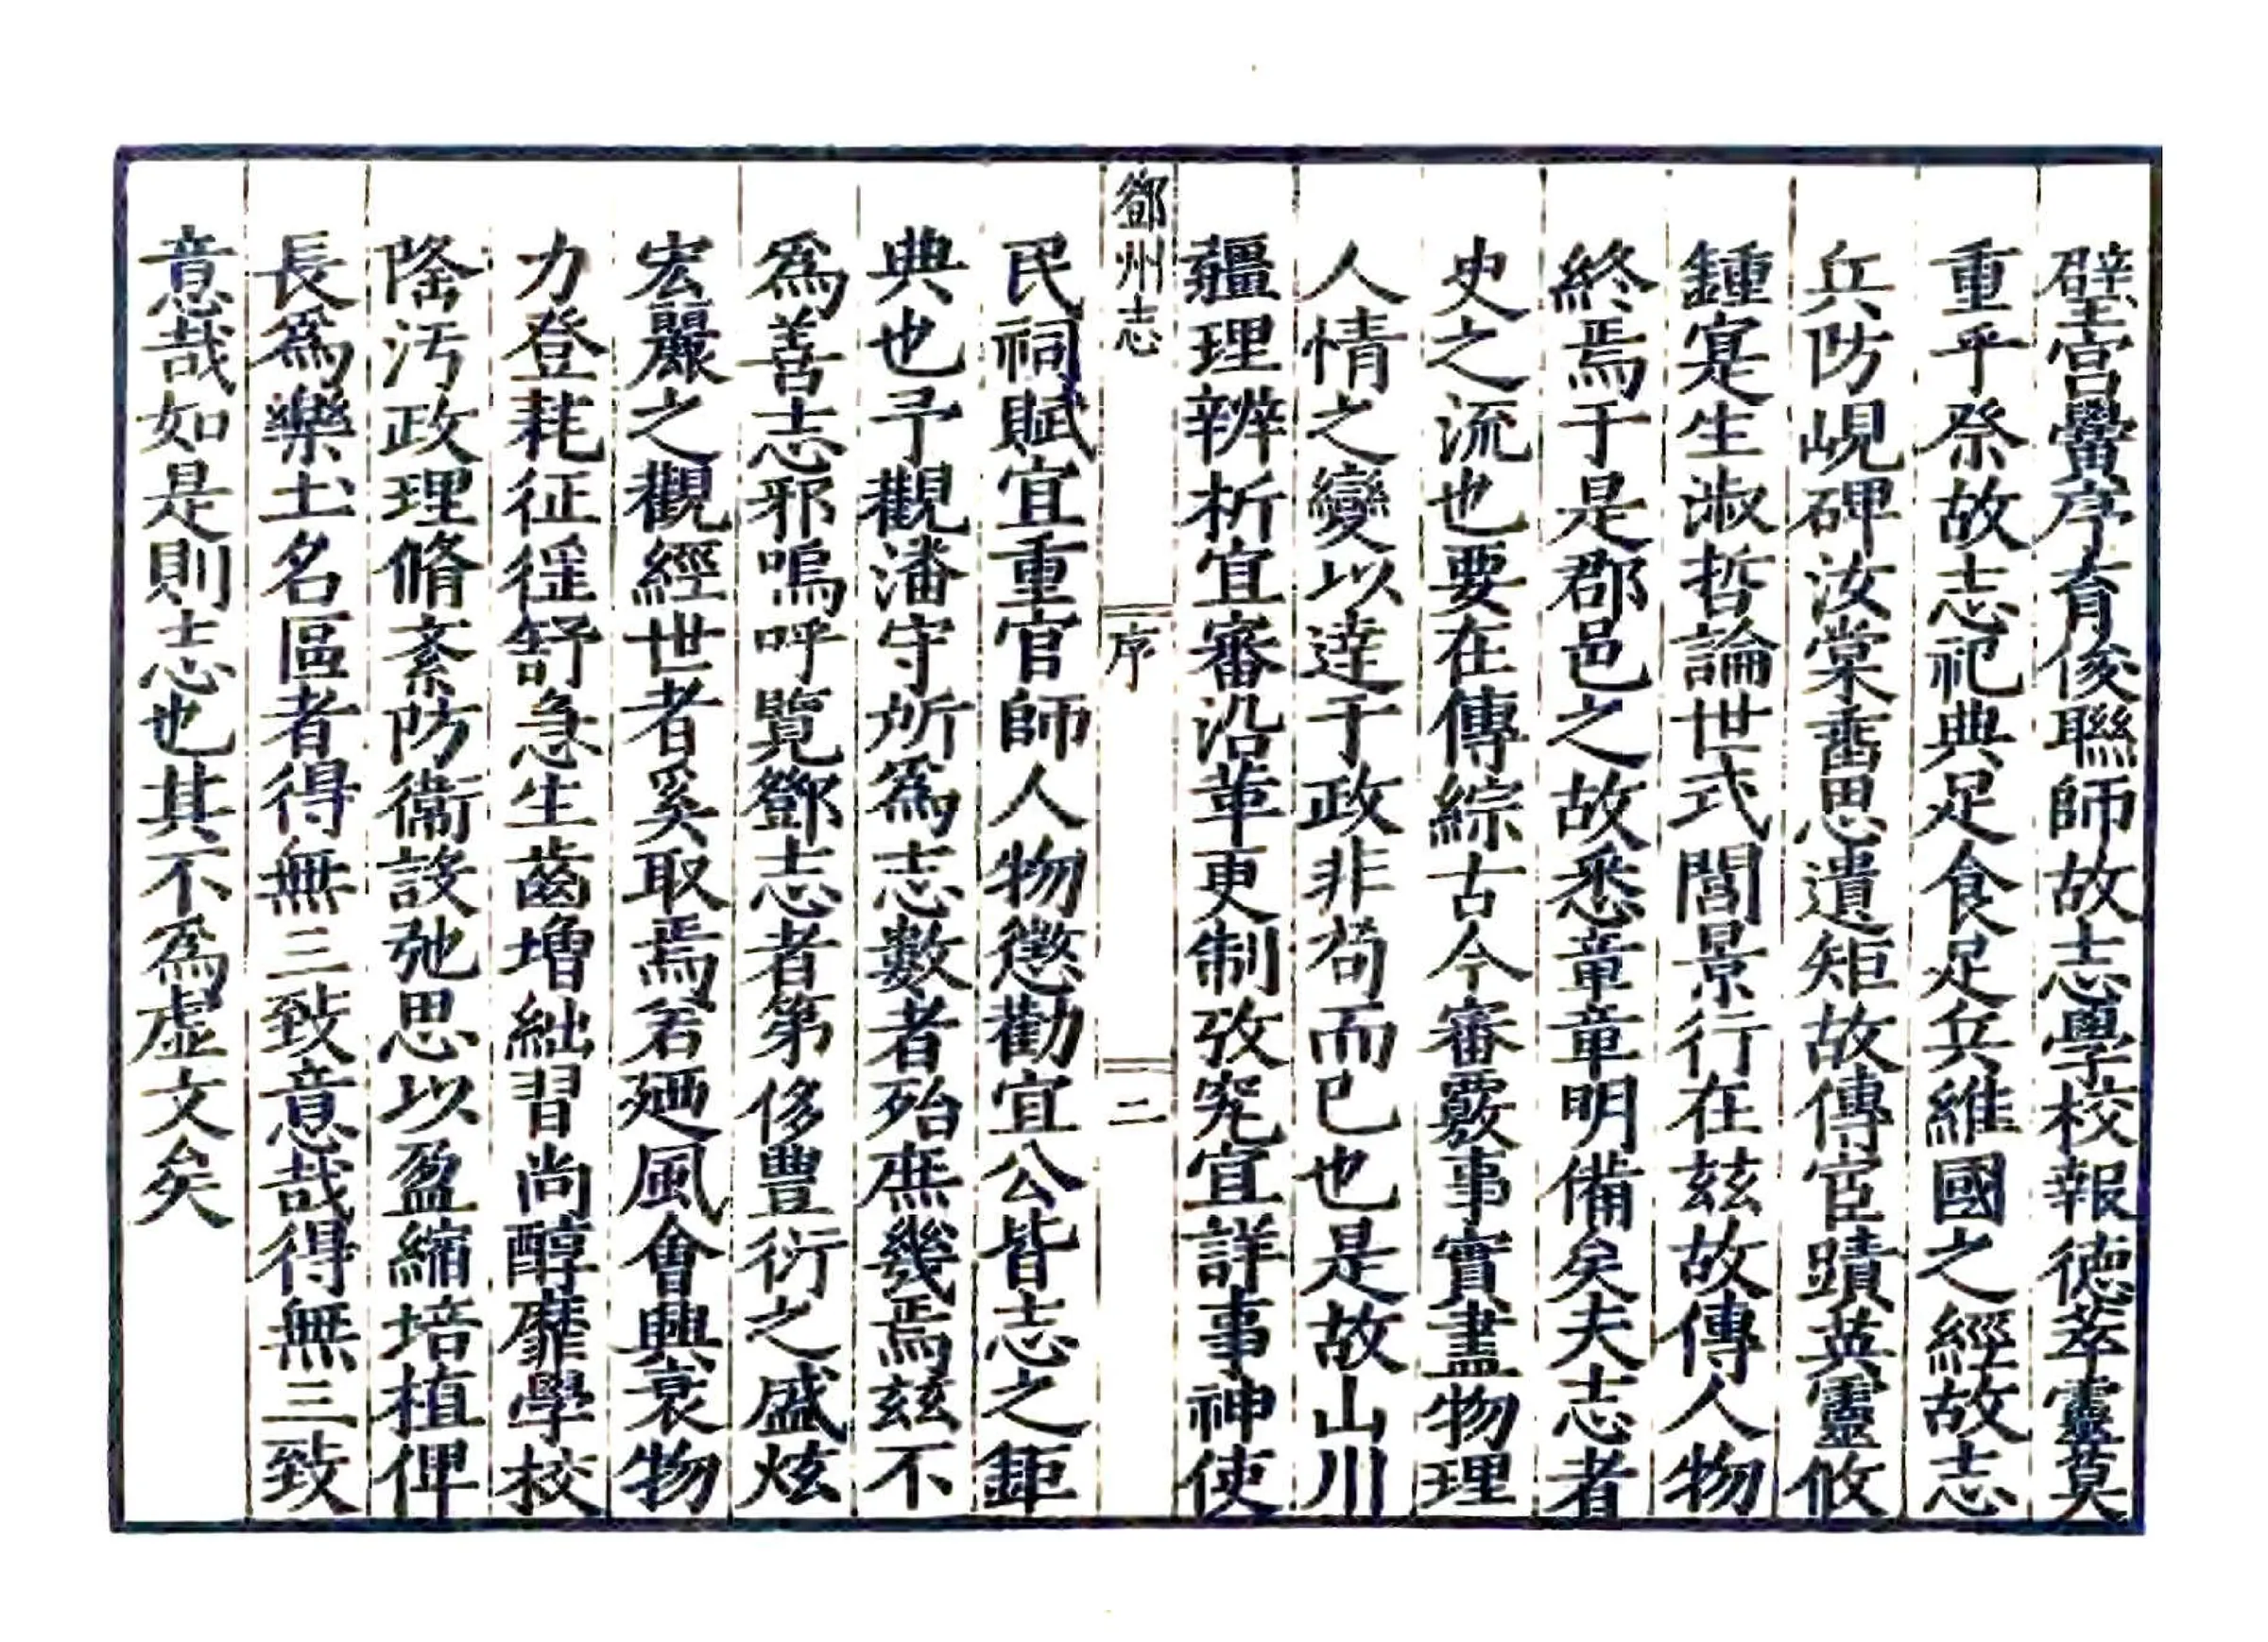 璧宮黌序育俊聯師故志學校報德萃靈莫
重乎祭故志祀典足食足兵維國之經故志
兵防峴碑汝棠舊思遺矩故傳宦蹟英靈攸
鍾寔生淑哲論世式閭景行在玆故傳人物
終焉于是郡邑之故悉章章明備矣夫志者
史之流也要在傳綜古今審覈事實盡物理
人情之變以達于政非苟而已也是故山川
疆理辨析宜審沿革更制攷究宜詳事神使
鄧州志 序 二
民祠賦宜重官師人物懲勸宜公皆志之鉅
典也予觀潘守所爲志數者殆庶幾焉玆不
爲善志邪嗚呼覽鄧志者第侈豐衍之盛炫
宏麗之觀經世者奚取焉若廼風會興衰物
力登耗征徭舒急生齒增絀習尚醇靡學校
隆汚政理脩紊防衞設弛思以盈縮培植俾
長爲樂土名區者得無三致意哉得無三致
意哉如是則志也其不爲虛文矣